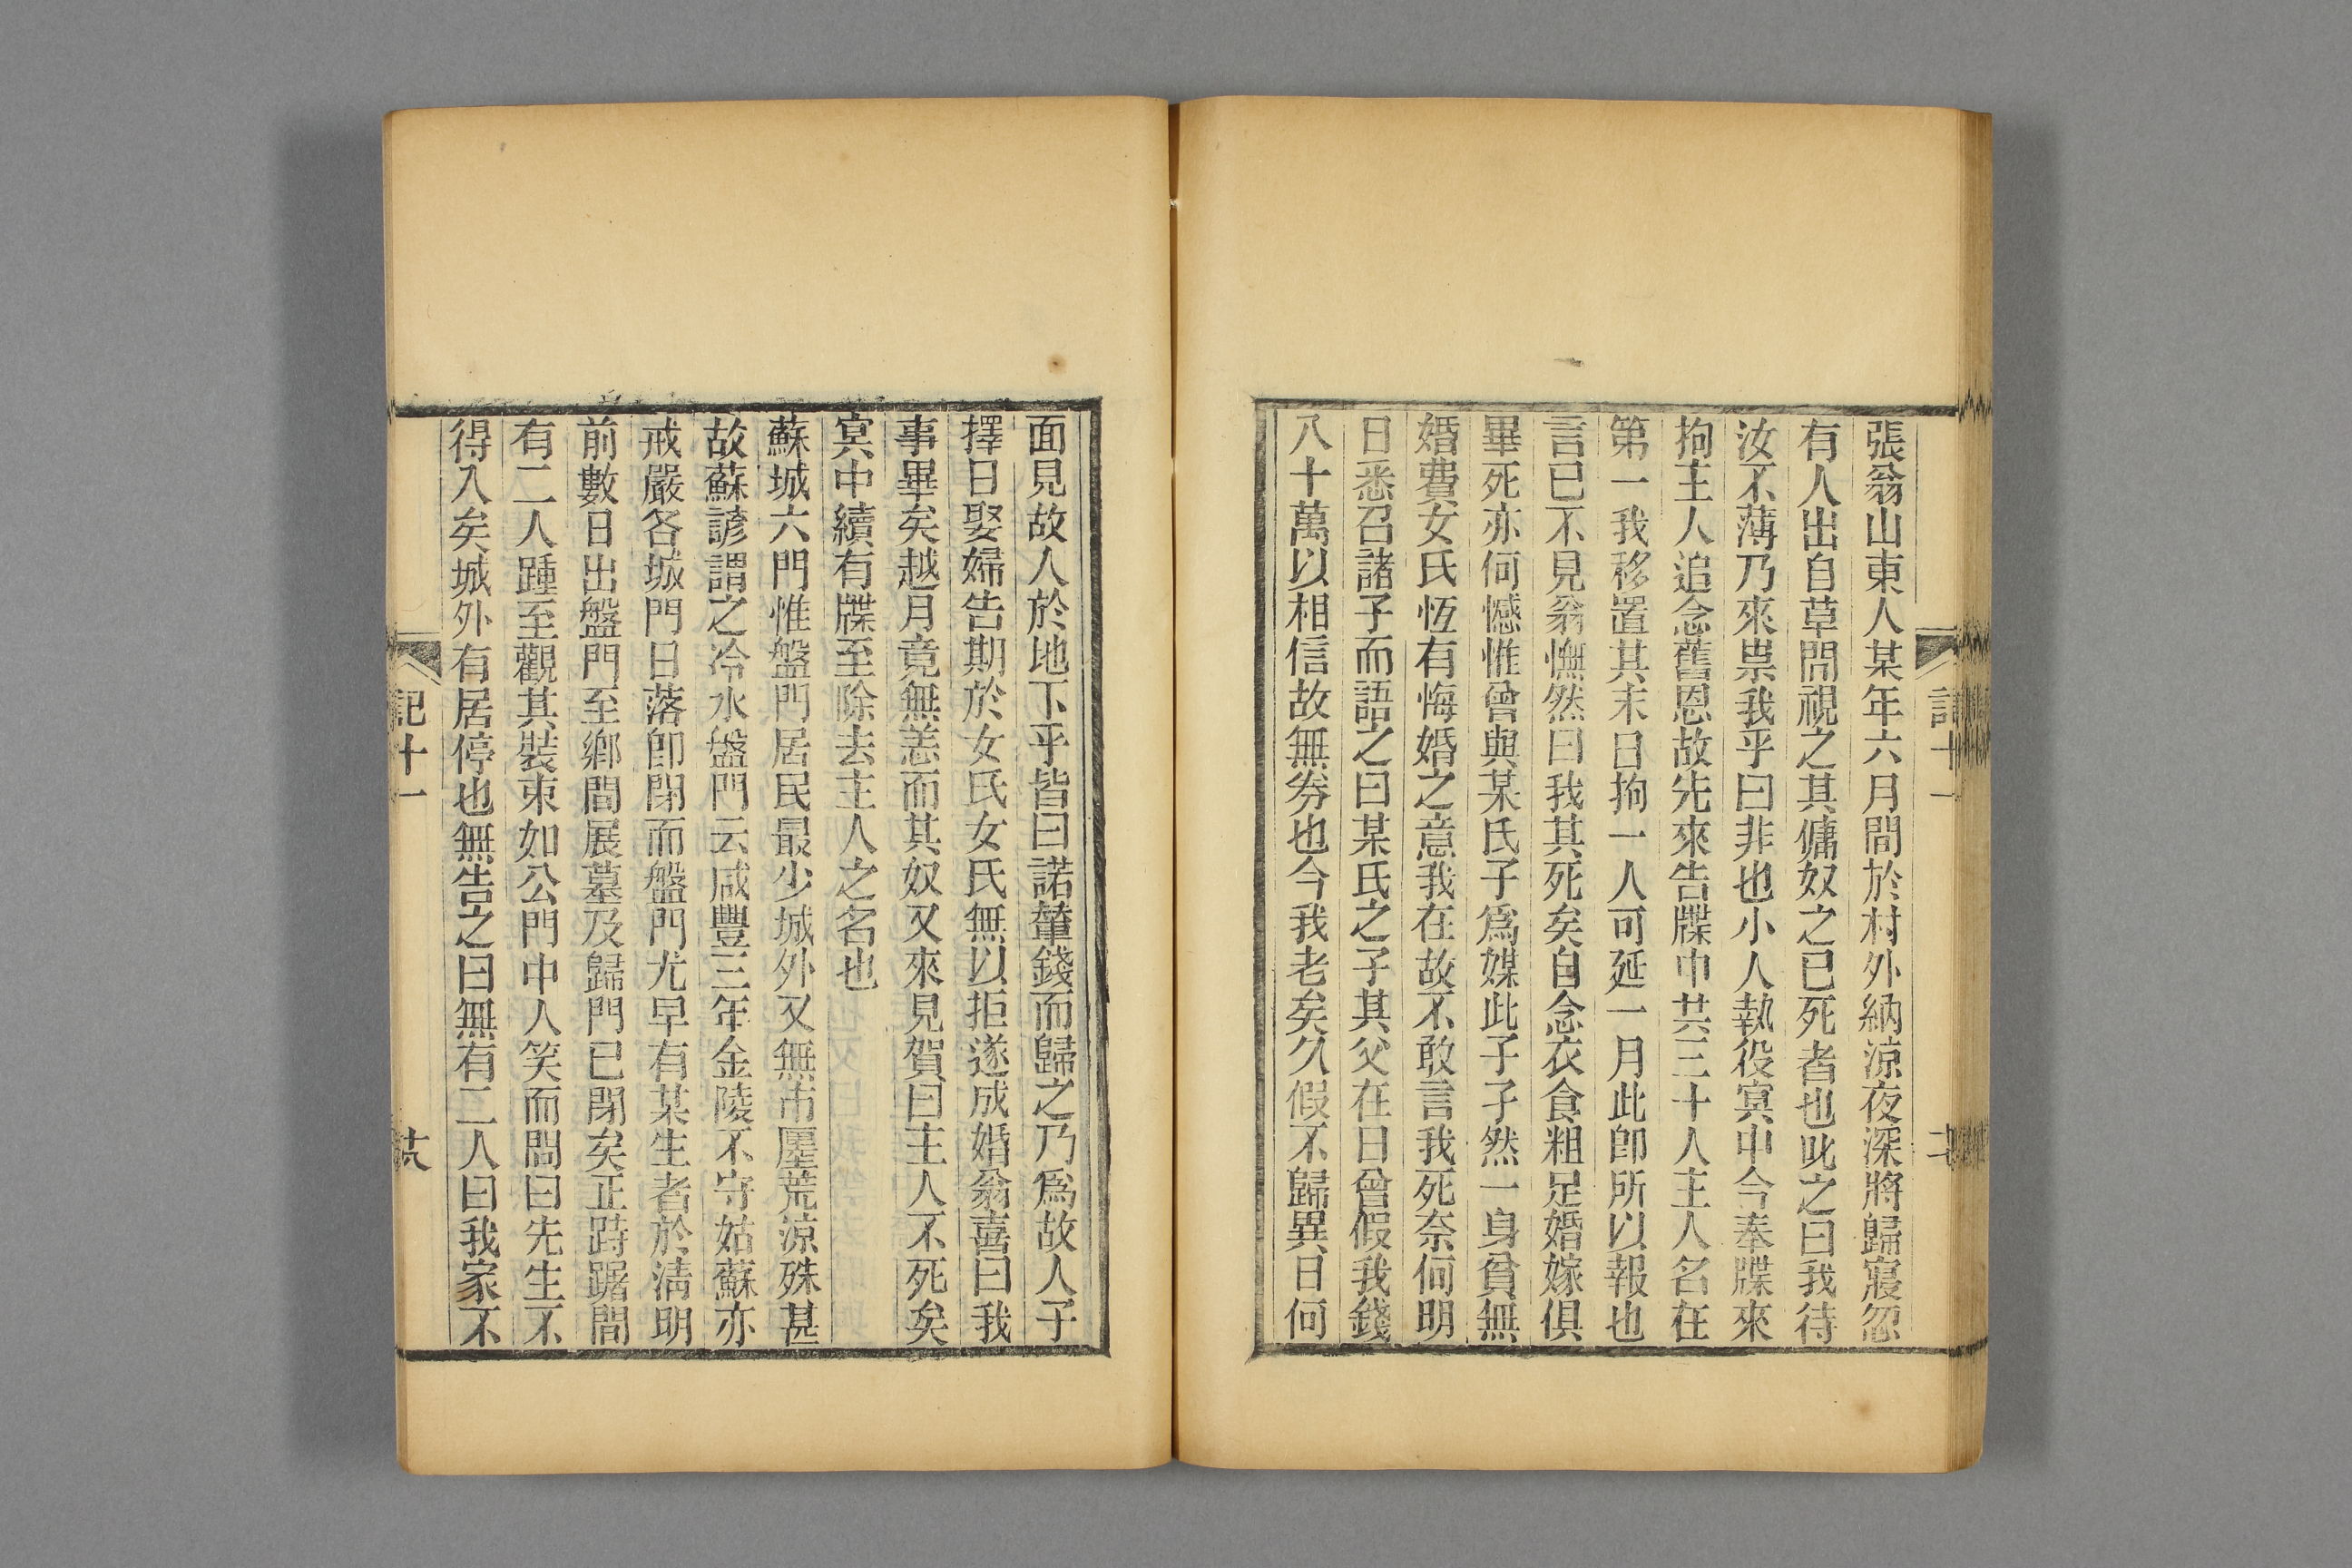 張翁山東人某年六月間於村外納涼夜深將歸寢忽
有人出自草間視之其傭奴之已死者也叱之曰我待
汝不薄乃來祟我乎曰非也小人執役冥中今奉牒來
拘主人追念舊恩故先來告牒中共三十人主人名在
第一我移置其末日拘一人可延一月此卽所以報也
言已不見翁憮然曰我其死矣自念衣食粗足婚嫁俱
畢死亦何憾惟曾與某氏子爲媒此子孑然一身貧無
婚費女氏恆有悔婚之意我在故不敢言我死奈何明
日悉召諸子而語之曰某氏之子其父在日曾假我錢
八十萬以相信故無券也今我老矣久假不歸異日何
面見故人於地下乎皆曰諾輦錢而歸之乃爲故人子
擇日娶婦告期於女氏女氏無以拒遂成婚翁喜曰我
事畢矣越月竟無恙而其奴又來見賀曰主人不死矣
冥中續有牒至除去主人之名也
蘇城六門惟盤門居民最少城外又無市廛荒涼殊甚
故蘇諺謂之冷水盤門云咸豐三年金陵不守姑蘇亦
戒嚴各城門日落卽閉而盤門尤早有某生者於淸明
前數日出盤門至鄕間展墓及歸門已閉矣正跱躇間
有二人踵至觀其裝束如公門中人笑而問曰先生不
得入矣城外有居停也無告之曰無有二人曰我家不
記十一